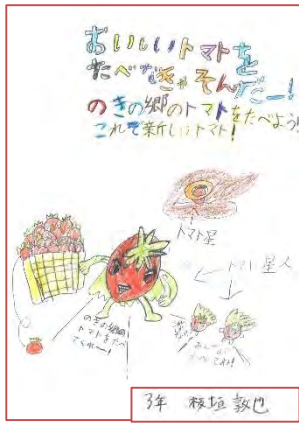 おいしいトマトを
たべなきゃそんだー!
のきの郷のトマトをたべよう!
これで新しいトマト!
トマト星
トマト星人
のきの郷の
トマトをたべ
てくれ〜!
3年 板垣敦也